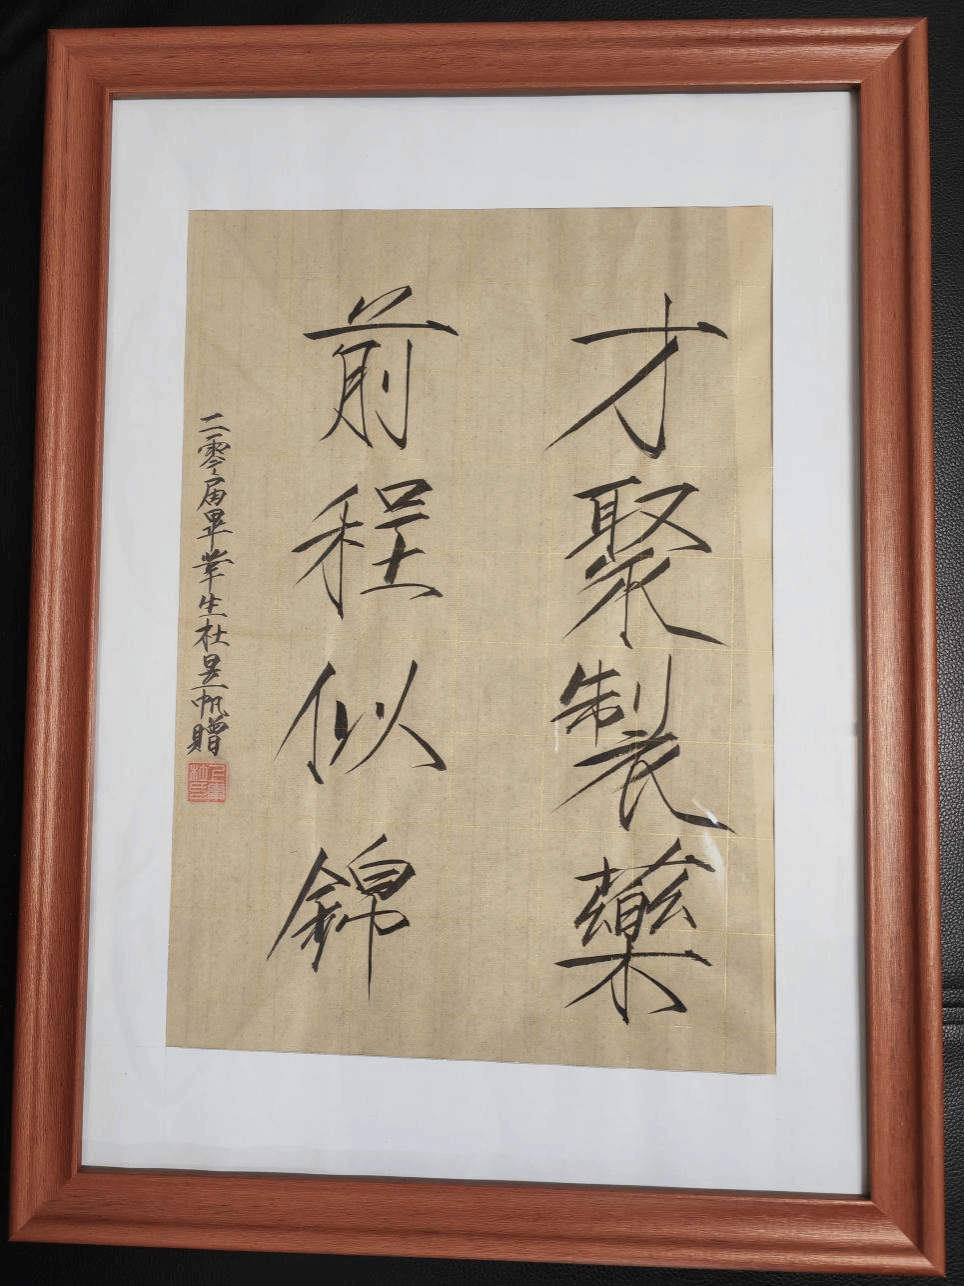 才聚製藥
前程似錦
二零届畢業生杜昱帆贈